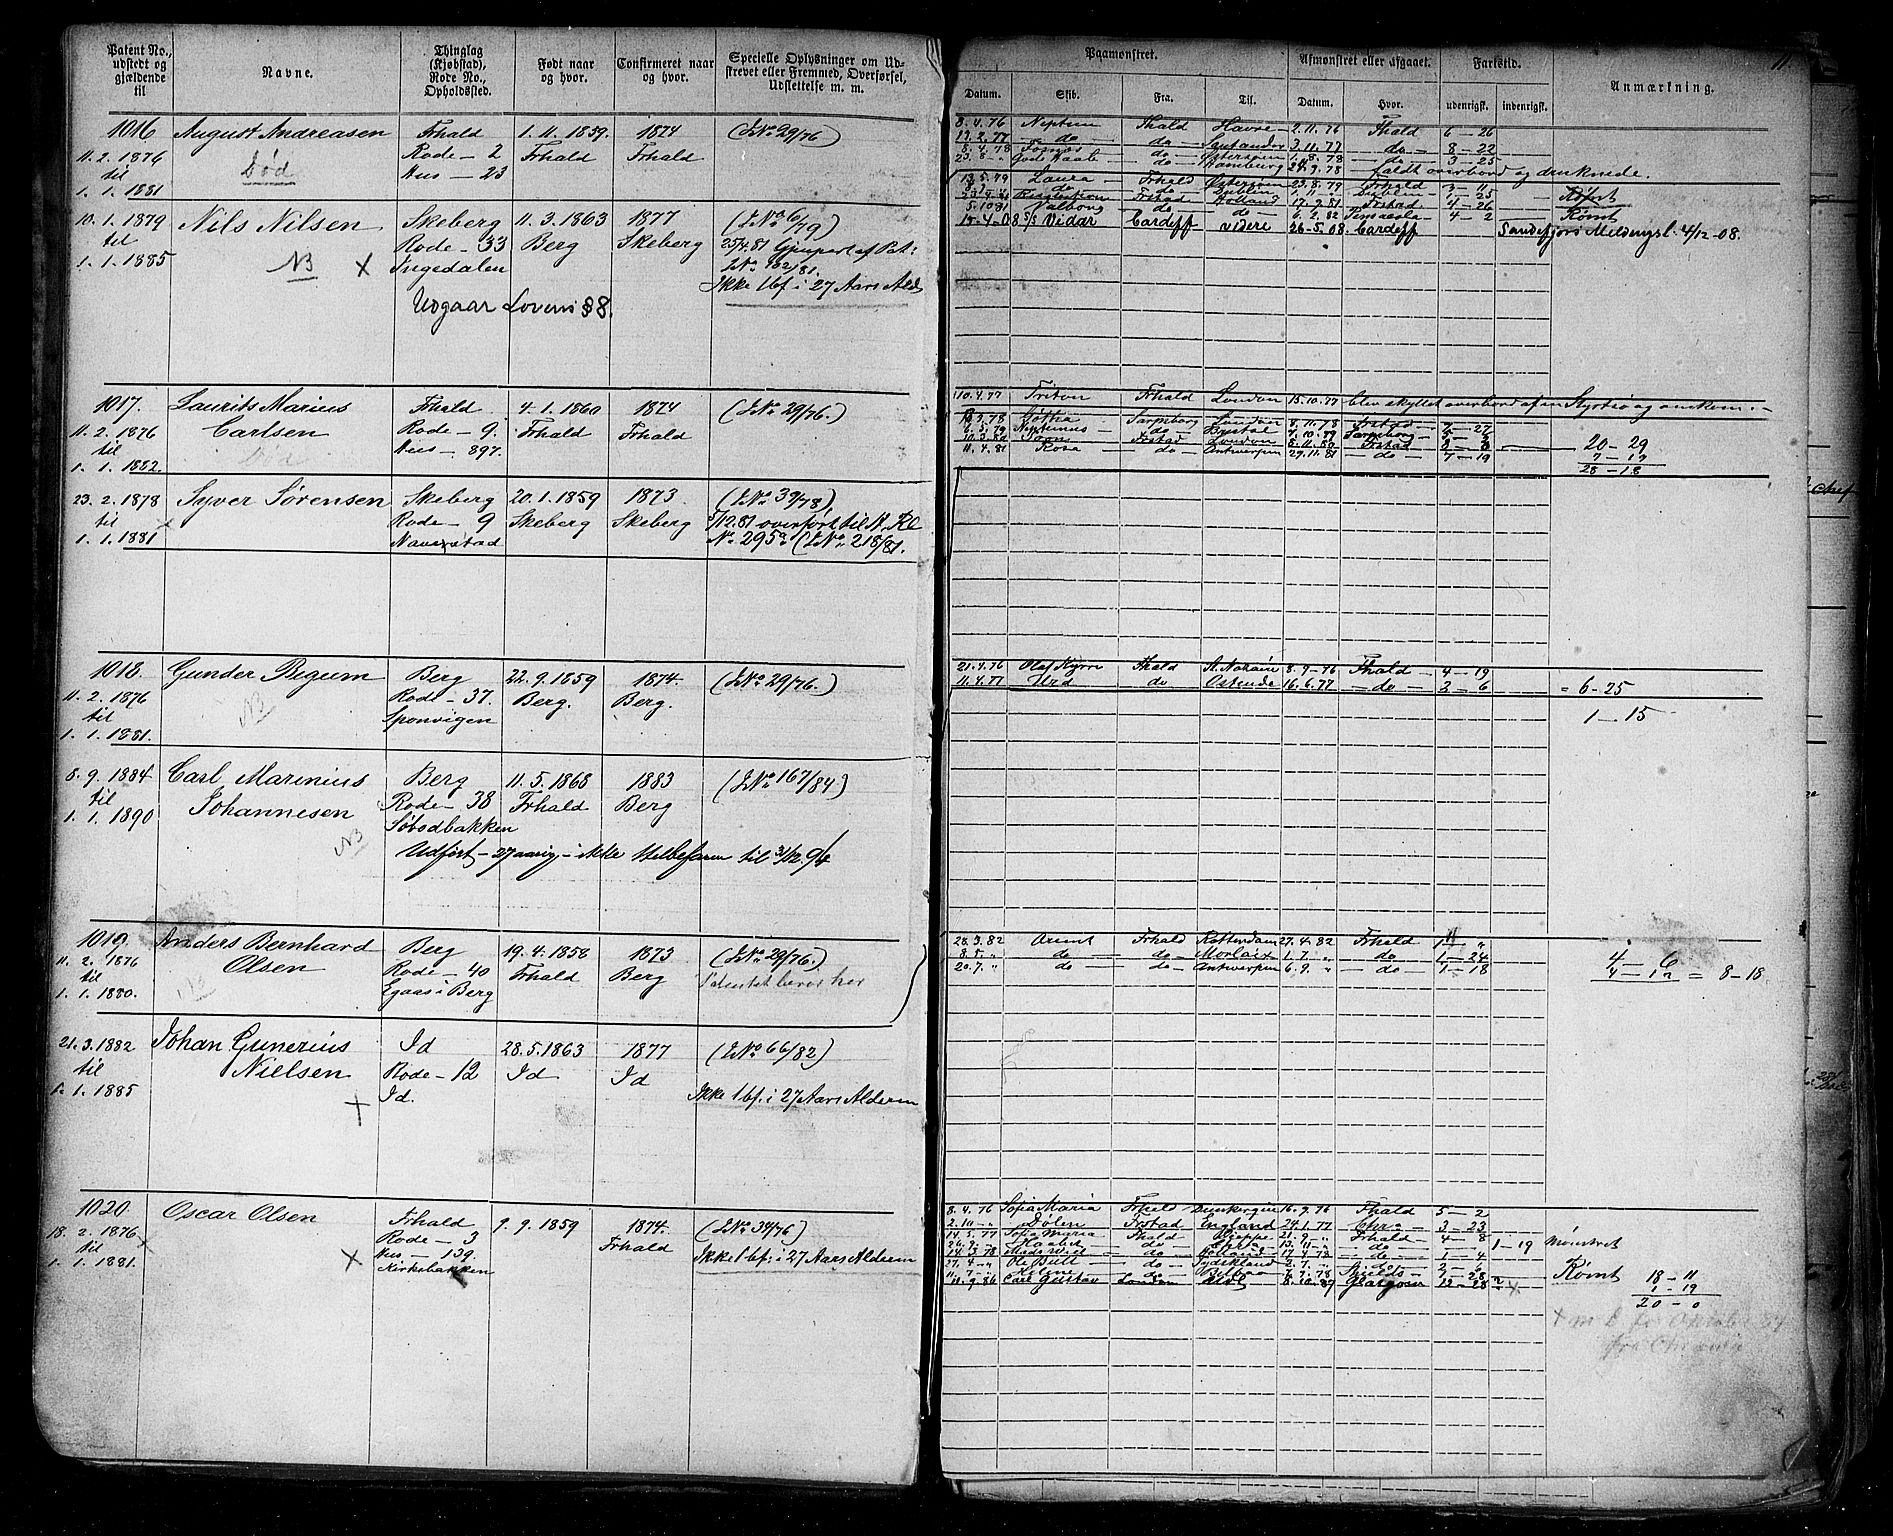 Patent No., udstedt og gjældende til
Navne.
Thinglag (Kjøbstad), Rode No., Opholdssted.
Født naar og hvor.
Confirmeret naar og hvor.
Specielle Oplysninger om Udstrevet eller Fremmed, Overførsel, Udslettelse m. m.
Paamønstret.
Afmønstret eller afgaaet.
Fartstid.
Anmærkning.
Datum. Skib. Fra. Til. Datum. Hvor. udenrigsk. indenrigsk.
1016 August Andreasen Frhald 1. 11. 1859. 1874 (J.No 29/76)
11. 2. 1876 Rode - 2 Frhald Frhald
til død Hus - 23
1. 1. 1881
8. 4. 76 Neptun Fhald Havre 2. 11. 76 Fhald 6 - 26
13. 2. 77 do do Santander 3. 11. 77 do 8 - 22
8. 4. 78 do Østersøen 1. 8. 78 do 3 - 25
23. 8 " Godt Haab do Hamburg 24. 9. 78 faldt overbord og druknede.
10. 1. 1879 Nils Nilsen Skeberg 11. 3. 1863 1877 (J.No 6/79)
til Rode - 33 Berg Skeberg 25/4.81 Gjenpart af Pat:
1. 1. 1885 NB x Ingedalen J.No 102/81.
Ikke 1 bf. i 27 Aars Ald
Udgaar Lovens § 8.
13. 5. 79 Laura Frhald Østersøen 23. 8. 79 Frhald 3 - 11
do do Dublin 1. 11. " Dublin 1 - 25 Rømt
Frstad Holland 17. 9. 81 Frstad 4 - 26
5. 10 81 Valborg do do 6. 2. 82 Pensacola 4 2 Rømt
15-4-08 s/s Vidar Cardiff videre 26-5-08. Cardiff Sandefjord Meldingsl. 4/12-08.
1017. Laurits Marius Frhald 4. 1. 1860 1874 (J.No 29/76.)
11. 2. 1876 Carlsen Rode - 9. Frhald Frhald
til Hus - 897.
1. 1. 1882.
10. 4. 77 Triton Frhald London 15. 10. 77 blev skyllet overbord af en Styrtsø og omkom.
23. 2. 1878 Syver Sørensen Skeberg 20. 1. 1859 1873. (J.No 39/78)
til Rode - 9 Skeberg Skeberg 5/12.81 overført til N. Rl
1. 1. 1881 Naverstad No 295 a (J.No 218/81.
78 Gøtha Sarpsborg London 8. 11. 78 Frstad 7 - 27
79 Neptunus do 10. 79 Sarpsborg
10. 3. 80 Frstad London 8. 11. 80 Frstad 8 - 20 - 29
11. 4. 81 Rosa do Antwerpen 29. 11. 81 do 7 - 19 7 - 19
28 - 18
1018. Gunder Begum Berg 22. 9. 1859 1874. (J.No 29/76.)
11. 2. 1876 Rode - 37. Berg. Berg.
til NB Sponvigen
1. 1. 1881.
21. 4. 76 Olaf Kyrre Fhald St. Nazaire 8. 9 - 76 Fhald 4 - 19
11. 4. 77 Urd do Ostende 16. 6. 77 do 2 - 6 = 6 - 25
1 - 15
8. 9. 1884 Carl Marinius Berg 11. 5. 1868 1883 (J.No 167/84)
til Johannesen Rode - 38 Frhald Berg
1. 1. 1890 NB Søbodbakken
Udført - 27 aarig - ikke Helbefaren til 31/12. 94
1019. Anders Bernhard Berg 19. 4. 1858 1873 (J.No 29/76.)
11. 2. 1876 Olsen Rode - 40 Frhald Berg Patentet beror her
til NB Egaas i Berg
1. 1. 1880.
28. 3. 82 Orient Frhald Rotterdam 27. 4. 82 Frhald 1 "
8. 5. " do do Morlaix 1. 7. " do 1 - 24 4 - 6
20. 7. " do do Antwerpen 6. 9. " do 1 - 18 4 - 12 = 8 - 18.
21. 3. 1882 Johan Gunerius Id 28. 5. 1863 1877 (J.No 66/82)
til Nielsen Rode - 12 Id Id
1. 1. 1885 x Id. Ikke 1 bf. i 27 Aars Alderen
1020. Oscar Olsen Frhald 9. 9. 1859 1874. (J.No 34/76)
18. 2. 1876 Rode - 3 Frhald Ikke 1 bf. i 27 Aars Alderen
til x Hus - 139.
1. 1. 1881. Kirkebakken
8. 4. 76 Sofia Maria Frhald 16. 9. 76 Fhald 5 - 2
2. 10 " Dølen Frstad England 24. 1. 77 Chra 3 - 23
14. 5. 77 Sofia Myria Fhald Dieppe 21. 9. " Frhald 4 - 8
26. 9. " Haabet do do 1 - 19 Mønstret
14. 3. 78 do Holland do 1 - 4
27. 4 " Ole Bull do Tydskland 2. 7. " do 2 - 6
11. 7 " Helene do Bilbao 7. 9. 78 Shields 1 - 28 Rømt 18 - 11
11. 9. 86 Carl Gustav London 8. 10. 87 Glasgow 12 - 28 x 1 - 19
20 - 0